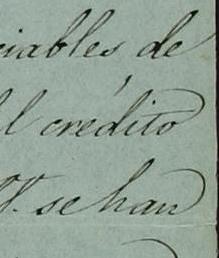 ciables de
l crédito
V. se han